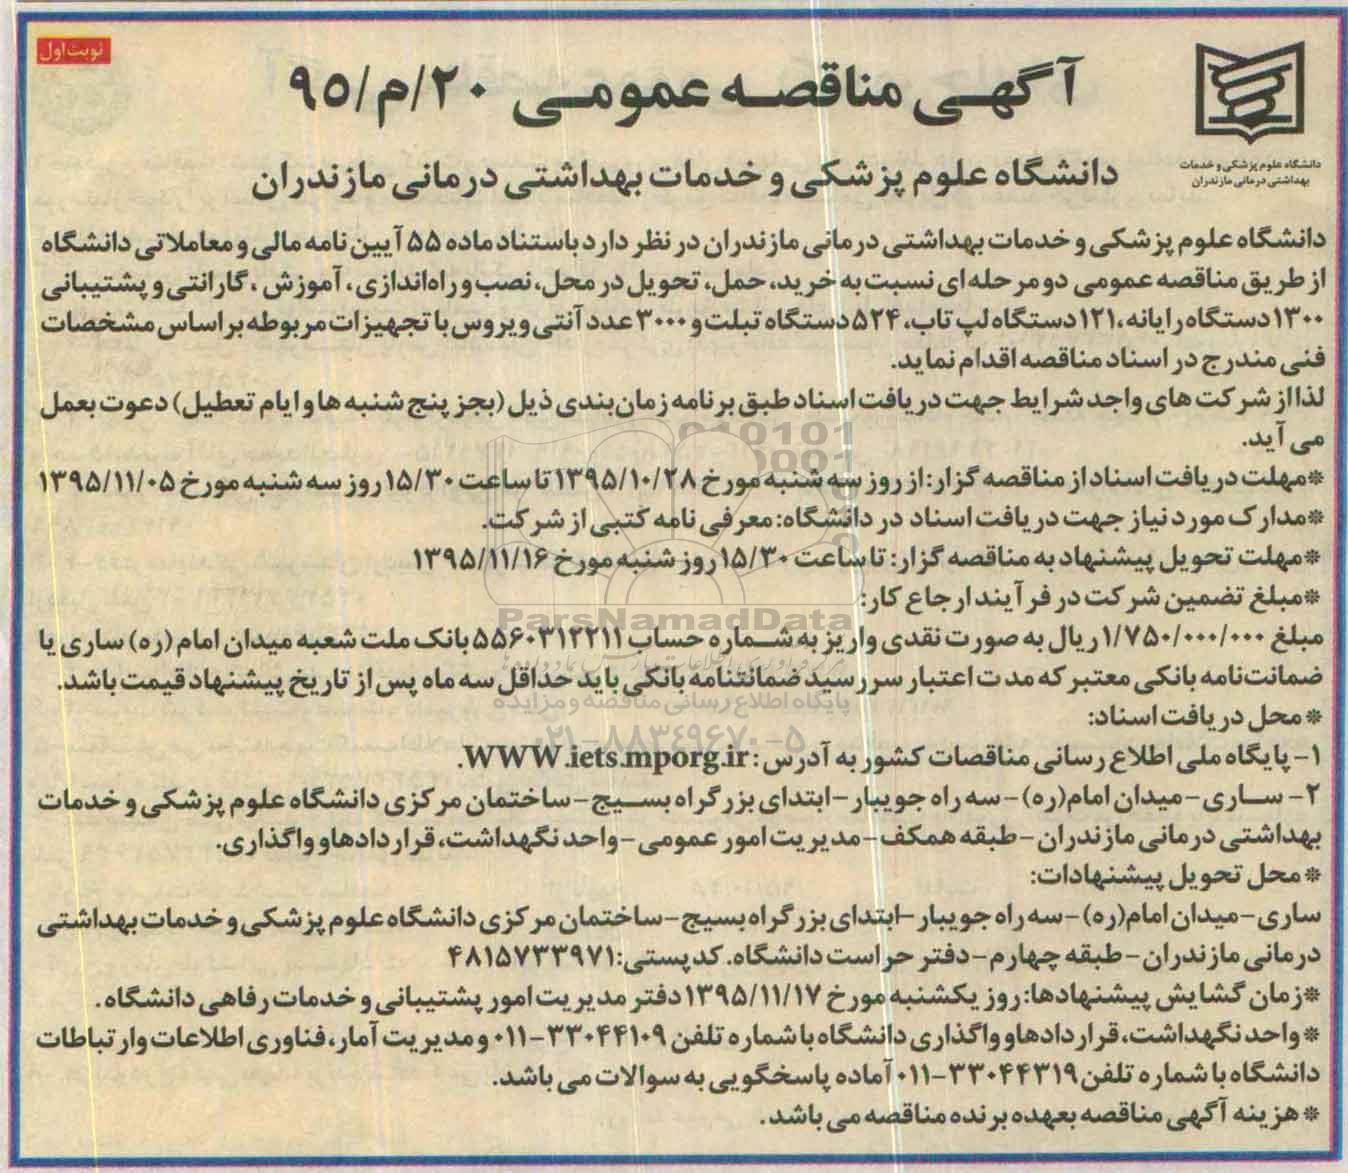 نوبت اول
آگهی مناقصه عمومی ۲۰/م/۹۵
دانشگاه علوم پزشکی و خدمات
بهداشتی درمانی مازندران
دانشگاه علوم پزشکی و خدمات بهداشتی درمانی مازندران
دانشگاه علوم پزشکی و خدمات بهداشتی درمانی مازندران در نظر دارد باستناد ماده ۵۵ آیین نامه مالی و معاملاتی دانشگاه
از طریق مناقصه عمومی دو مرحله ای نسبت به خرید، حمل، تحویل در محل، نصب و راه‌اندازی، آموزش ، گارانتی و پشتیبانی
۱۳۰۰ دستگاه رایانه، ۱۲۱ دستگاه لپ تاپ، ۵۲۴ دستگاه تبلت و ۳۰۰۰ عدد آنتی ویروس با تجهیزات مربوطه بر اساس مشخصات
فنی مندرج در اسناد مناقصه اقدام نماید.
لذا از شرکت های واجد شرایط جهت دریافت اسناد طبق برنامه زمان‌بندی ذیل (بجز پنج شنبه ها و ایام تعطیل) دعوت بعمل
می آید.
*مهلت دریافت اسناد از مناقصه گزار: از روز سه شنبه مورخ ۱۳۹۵/۱۰/۲۸ تا ساعت ۱۵/۳۰ روز سه شنبه مورخ ۱۳۹۵/۱۱/۰۵
*مدارک مورد نیاز جهت دریافت اسناد در دانشگاه: معرفی نامه کتبی از شرکت.
*مهلت تحویل پیشنهاد به مناقصه گزار: تا ساعت ۱۵/۳۰ روز شنبه مورخ ۱۳۹۵/۱۱/۱۶
*مبلغ تضمین شرکت در فرآیند ارجاع کار:
مبلغ ۱/۷۵۰/۰۰۰/۰۰۰ ریال به صورت نقدی واریز به شماره حساب ۵۵۶۰۳۱۲۲۱۱ بانک ملت شعبه میدان امام (ره) ساری یا
ضمانت‌نامه بانکی معتبر که مدت اعتبار سررسید ضمانتنامه بانکی باید حداقل سه ماه پس از تاریخ پیشنهاد قیمت باشد.
* محل دریافت اسناد:
۱- پایگاه ملی اطلاع رسانی مناقصات کشور به آدرس: WWW.iets.mporg.ir.
۲- ساری- میدان امام(ره) - سه راه جویبار - ابتدای بزرگراه بسیج- ساختمان مرکزی دانشگاه علوم پزشکی و خدمات
بهداشتی درمانی مازندران - طبقه همکف - مدیریت امور عمومی - واحد نگهداشت، قراردادها و واگذاری.
* محل تحویل پیشنهادات:
ساری- میدان امام(ره) - سه راه جویبار - ابتدای بزرگراه بسیج- ساختمان مرکزی دانشگاه علوم پزشکی و خدمات بهداشتی
درمانی مازندران- طبقه چهارم- دفتر حراست دانشگاه. کدپستی: ۴۸۱۵۷۳۳۹۷۱
*زمان گشایش پیشنهادها: روز یکشنبه مورخ ۱۳۹۵/۱۱/۱۷ دفتر مدیریت امور پشتیبانی و خدمات رفاهی دانشگاه.
* واحد نگهداشت، قراردادها و واگذاری دانشگاه با شماره تلفن ۳۳۰۴۴۱۰۹-۰۱۱ و مدیریت آمار، فناوری اطلاعات و ارتباطات
دانشگاه با شماره تلفن ۳۳۰۴۴۳۱۹-۰۱۱ آماده پاسخگویی به سوالات می باشد.
* هزینه آگهی مناقصه بعهده برنده مناقصه می باشد.
ParsNamadData
پایگاه اطلاع رسانی مناقصه و مزایده
۰۲۱-۸۸۳۴۹۶۷۰-۵